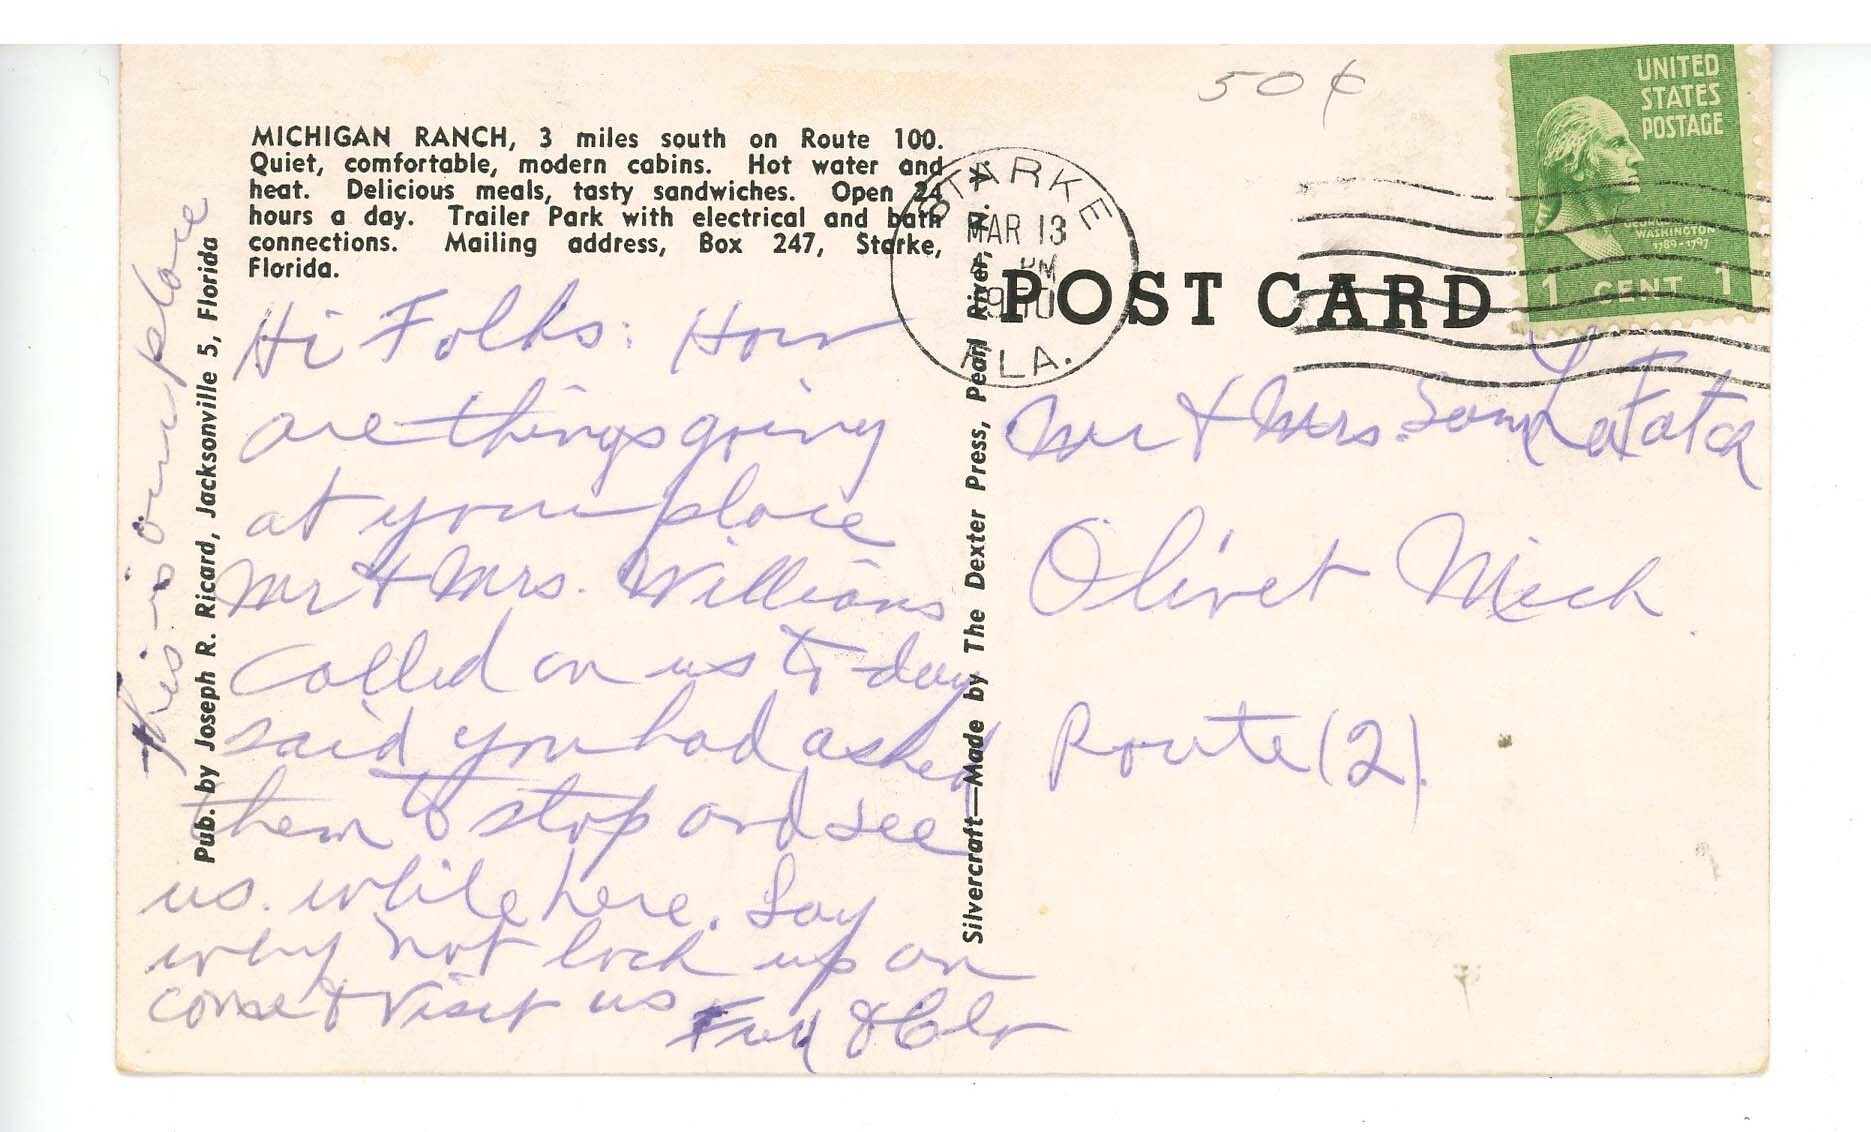 50¢
UNITED
STATES
POSTAGE
GEORGE
WASHINGTON
1789-1797
1 CENT 1
MICHIGAN RANCH, 3 miles south on Route 100.
Quiet, comfortable, modern cabins. Hot water and
heat. Delicious meals, tasty sandwiches. Open 24
hours a day. Trailer Park with electrical and bath
connections. Mailing address, Box 247, Starke,
Florida.
STARKE
MAR 13
PM
1950
FLA.
POST CARD
Hi Folks: How
are things going
at your place
Mr & Mrs. Williams
called on us to-day
said you had asked
them to stop and see
us. while here. Say
why not lock up an
come & visit us
Fred & Clo
this is our place
Pub. by Joseph R. Ricard, Jacksonville 5, Florida
Silvercraft—Made by The Dexter Press, Pearl River, N. Y.
Mr & Mrs. Sam LaFata
Olivet Mich.
Route (2).